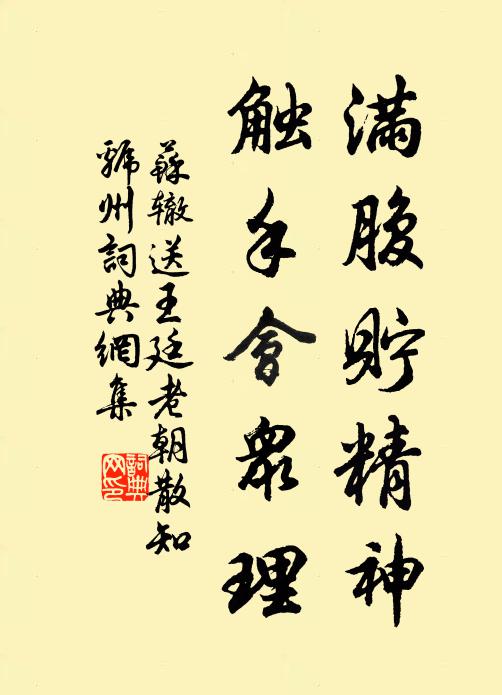 满腹贮精神
触手会众理
苏辙送王廷老朝散知
虢州词典網集
詞典
网印